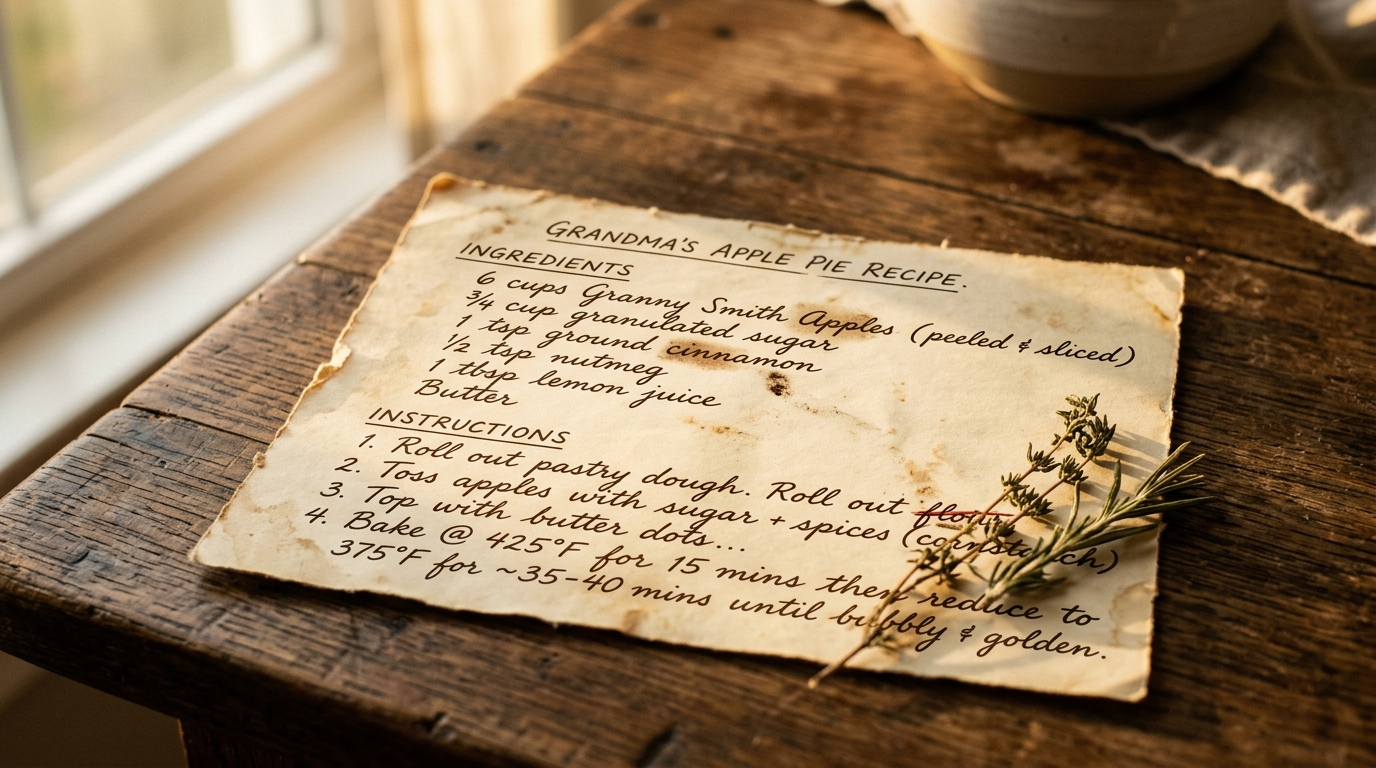 GRANDMA'S APPLE PIE RECIPE.
INGREDIENTS
6 cups Granny Smith Apples (peeled & sliced)
3/4 cup granulated sugar
1 tsp ground cinnamon
1/2 tsp nutmeg
1 tbsp lemon juice
Butter
INSTRUCTIONS
1. Roll out pastry dough. Roll out flour
2. Toss apples with sugar + spices (cornstarch)
3. Top with butter dots...
4. Bake @ 425°F for 15 mins then reduce to
375°F for ~35-40 mins until bubbly & golden.